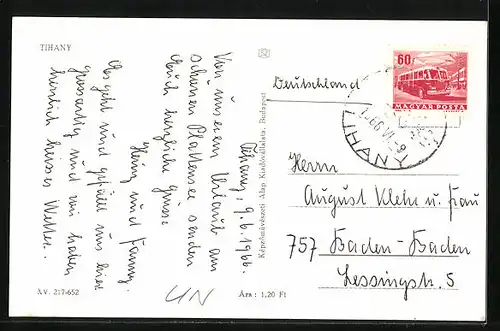 TIHANY
Tihany, 9.6.1966
Von unserem Urlaub am
schönen Plattensee senden
Euch herzliche Grüsse
Heinz und Fanny.
Es geht und gefällt uns hier
grossartig und wir haben
herrlich heisses Wetter.
XV. 217-652
Képzőművészeti Alap Kiadóvállalata, Budapest
Ára : 1,20 Ft
UN
60f
MAGYAR POSTA
TIHANY
Deutschland
Herrn
August Klehe u. Frau
757 Baden-Baden
Lessingstr. 5